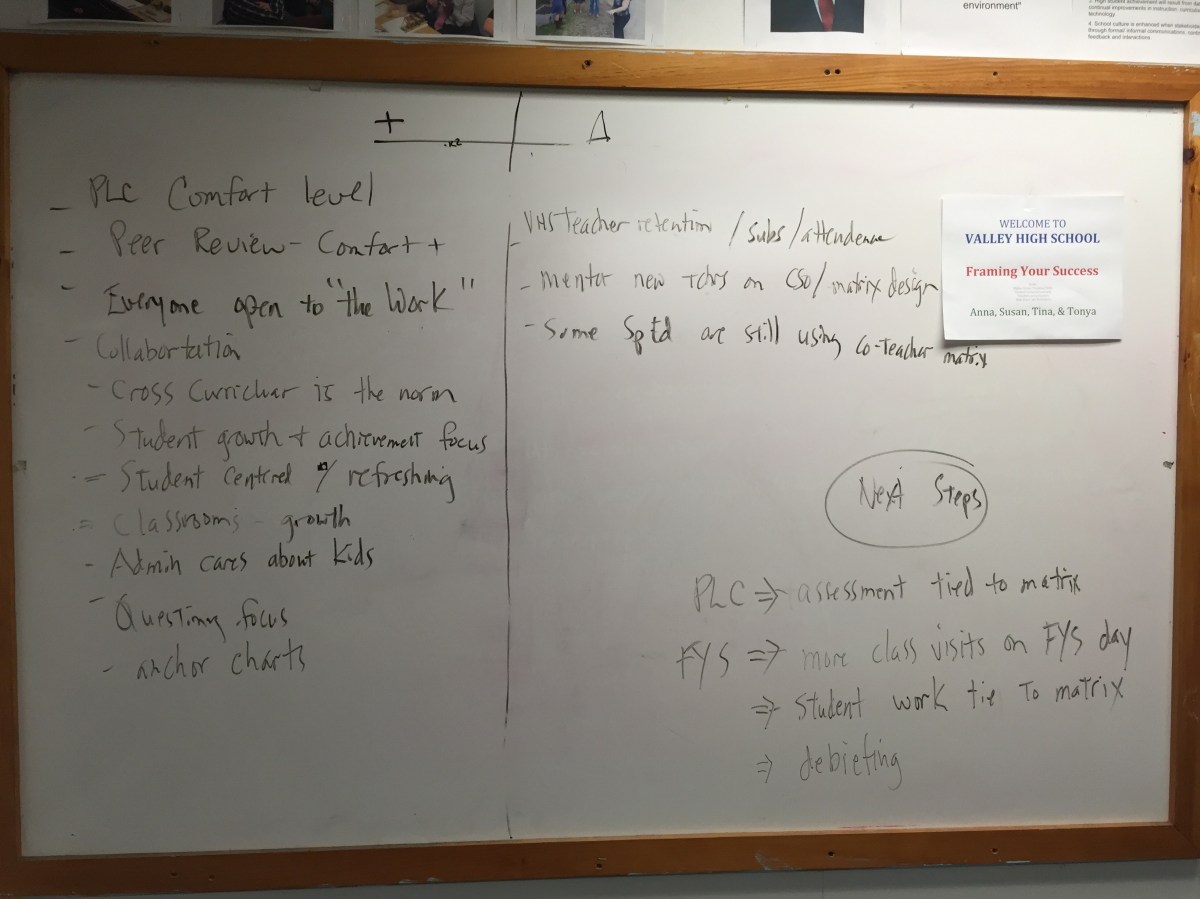 environment"
3. High student achievement will result from
continual improvements in instruction,
technology
4. School culture is enhanced when
through formal/ informal communications,
feedback and interactions.
+ Δ
- PLC Comfort level
- Peer Review - Comfort +
- Everyone open to "the Work"
- Collabortation
- Cross Curricluar is the norm
- Student growth + achievement focus
- Student Centered / refreshing
- Classrooms - growth
- Admin cares about kids
- Questing focus
- anchor charts
- VHS Teacher retention / Subs / attendence
- mentor new Tchrs on CSO / matrix design
- Some Sptd are still using co-teacher matrix
WELCOME TO
VALLEY HIGH SCHOOL
Framing Your Success
Anna, Susan, Tina, & Tonya
Next Steps
PLC ⇒ assessment tied to matrix
FYS ⇒ more class visits on FYS day
⇒ Student work tie To matrix
⇒ debiefing